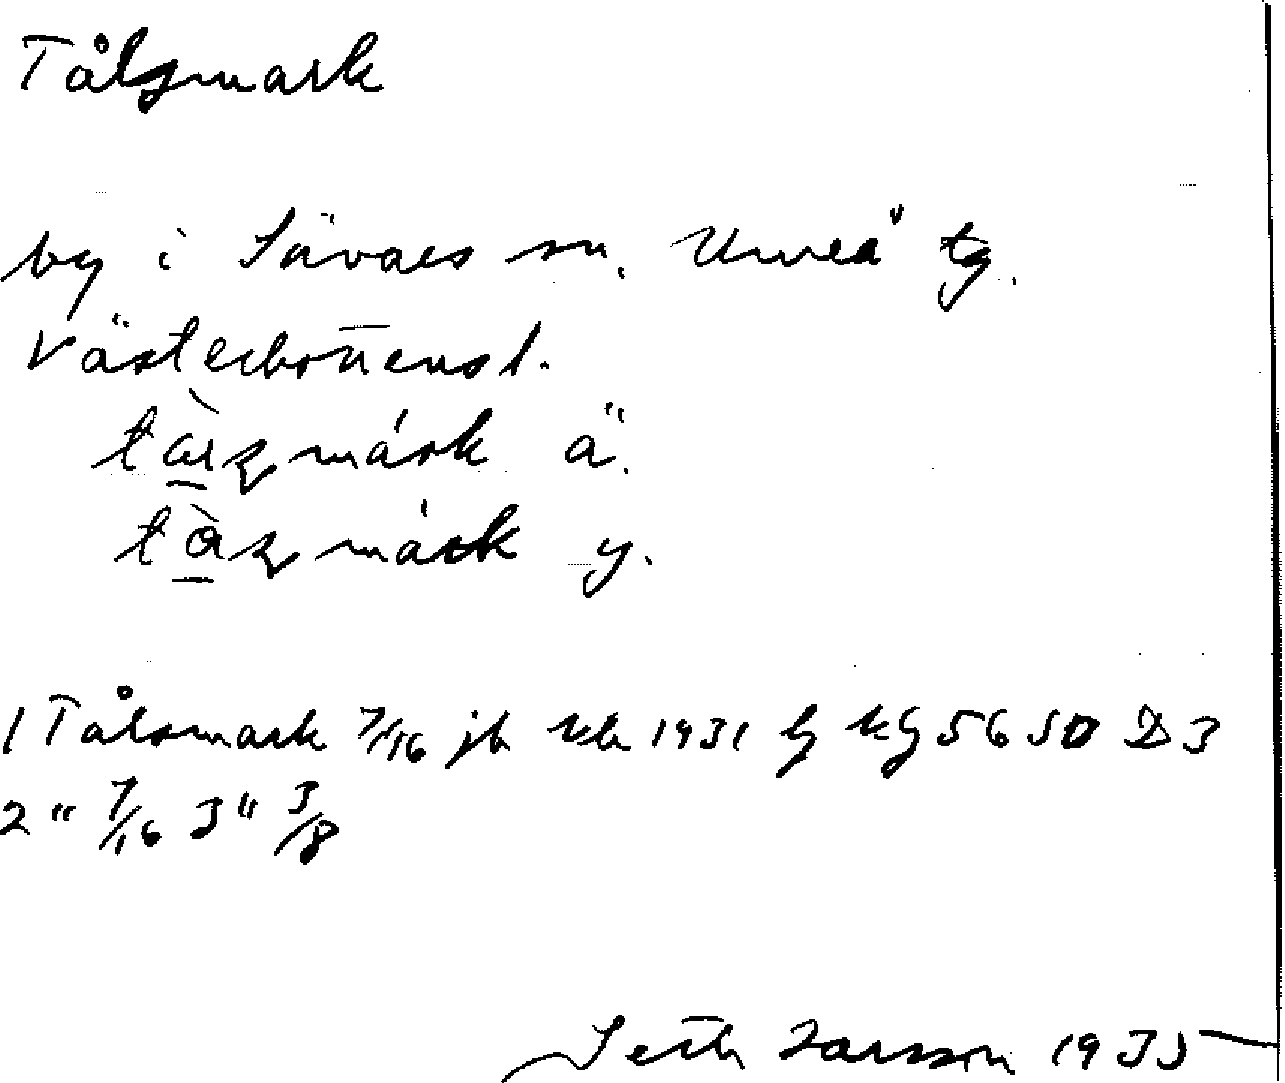 Tålsmark
by i Sävars sn. Umeå tg.
Västerbottensl.
tàrʂmárk ä.
tàʂmárk y.
1 Tålsmark 7/16 jb 1931 lg kg 5650 D3
2 " 7/16 3 " 3/8
Seth Larsson 1935